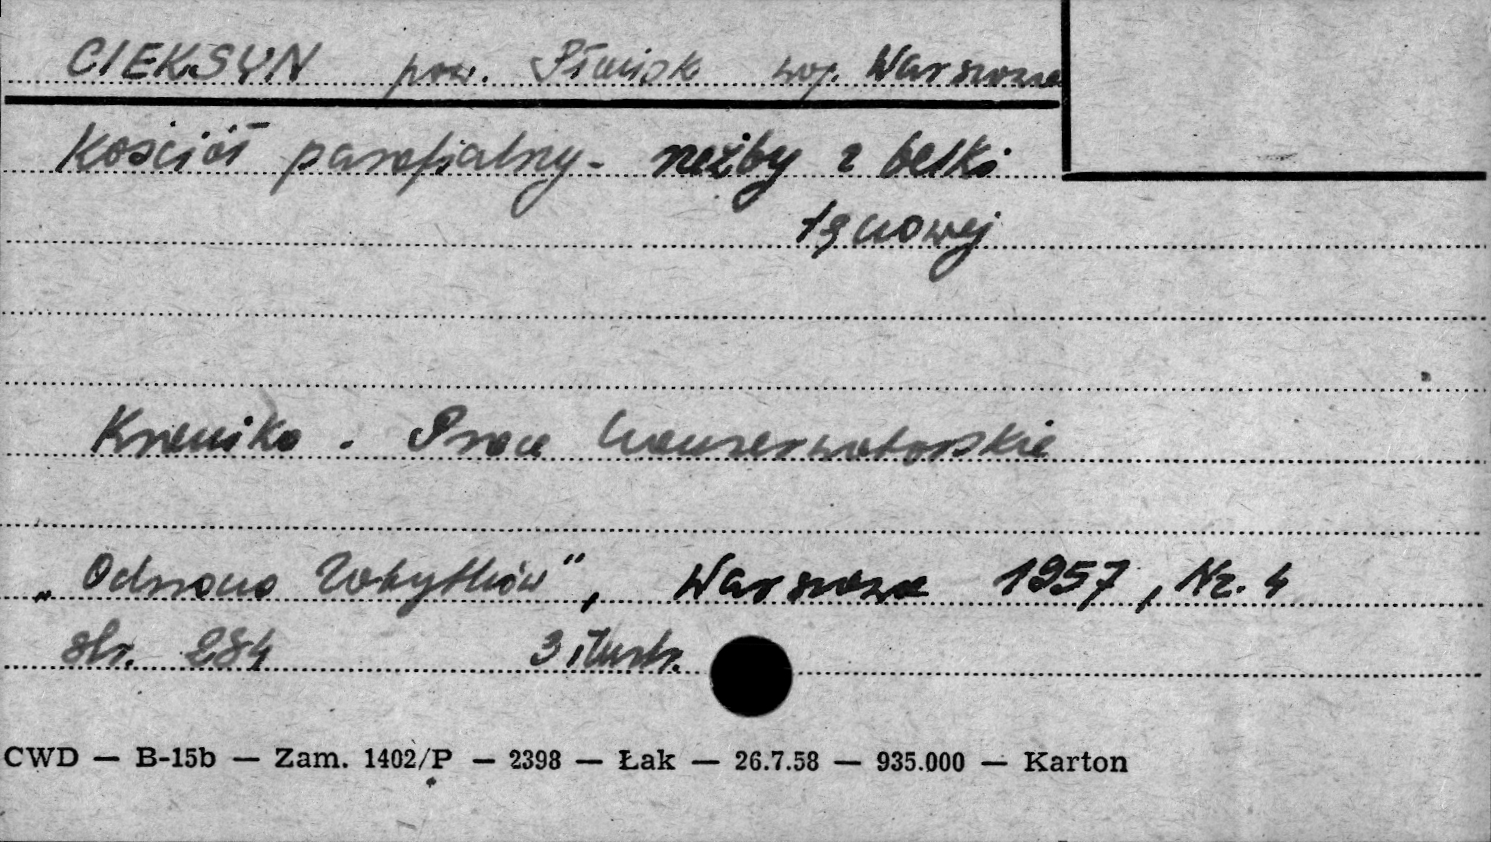 CIEKSYN pow. Płońsk woj. Warszawa
Kościół parafialny - rzeźby z belki
tęczowej
Kronika. Prace konserwatorskie
„Ochrona Zabytków”, Warszawa 1957, Nr. 4
str. 284 3 ilustr.
CWD — B-15b — Zam. 1402/P — 2398 — Łak — 26.7.58 — 935.000 — Karton